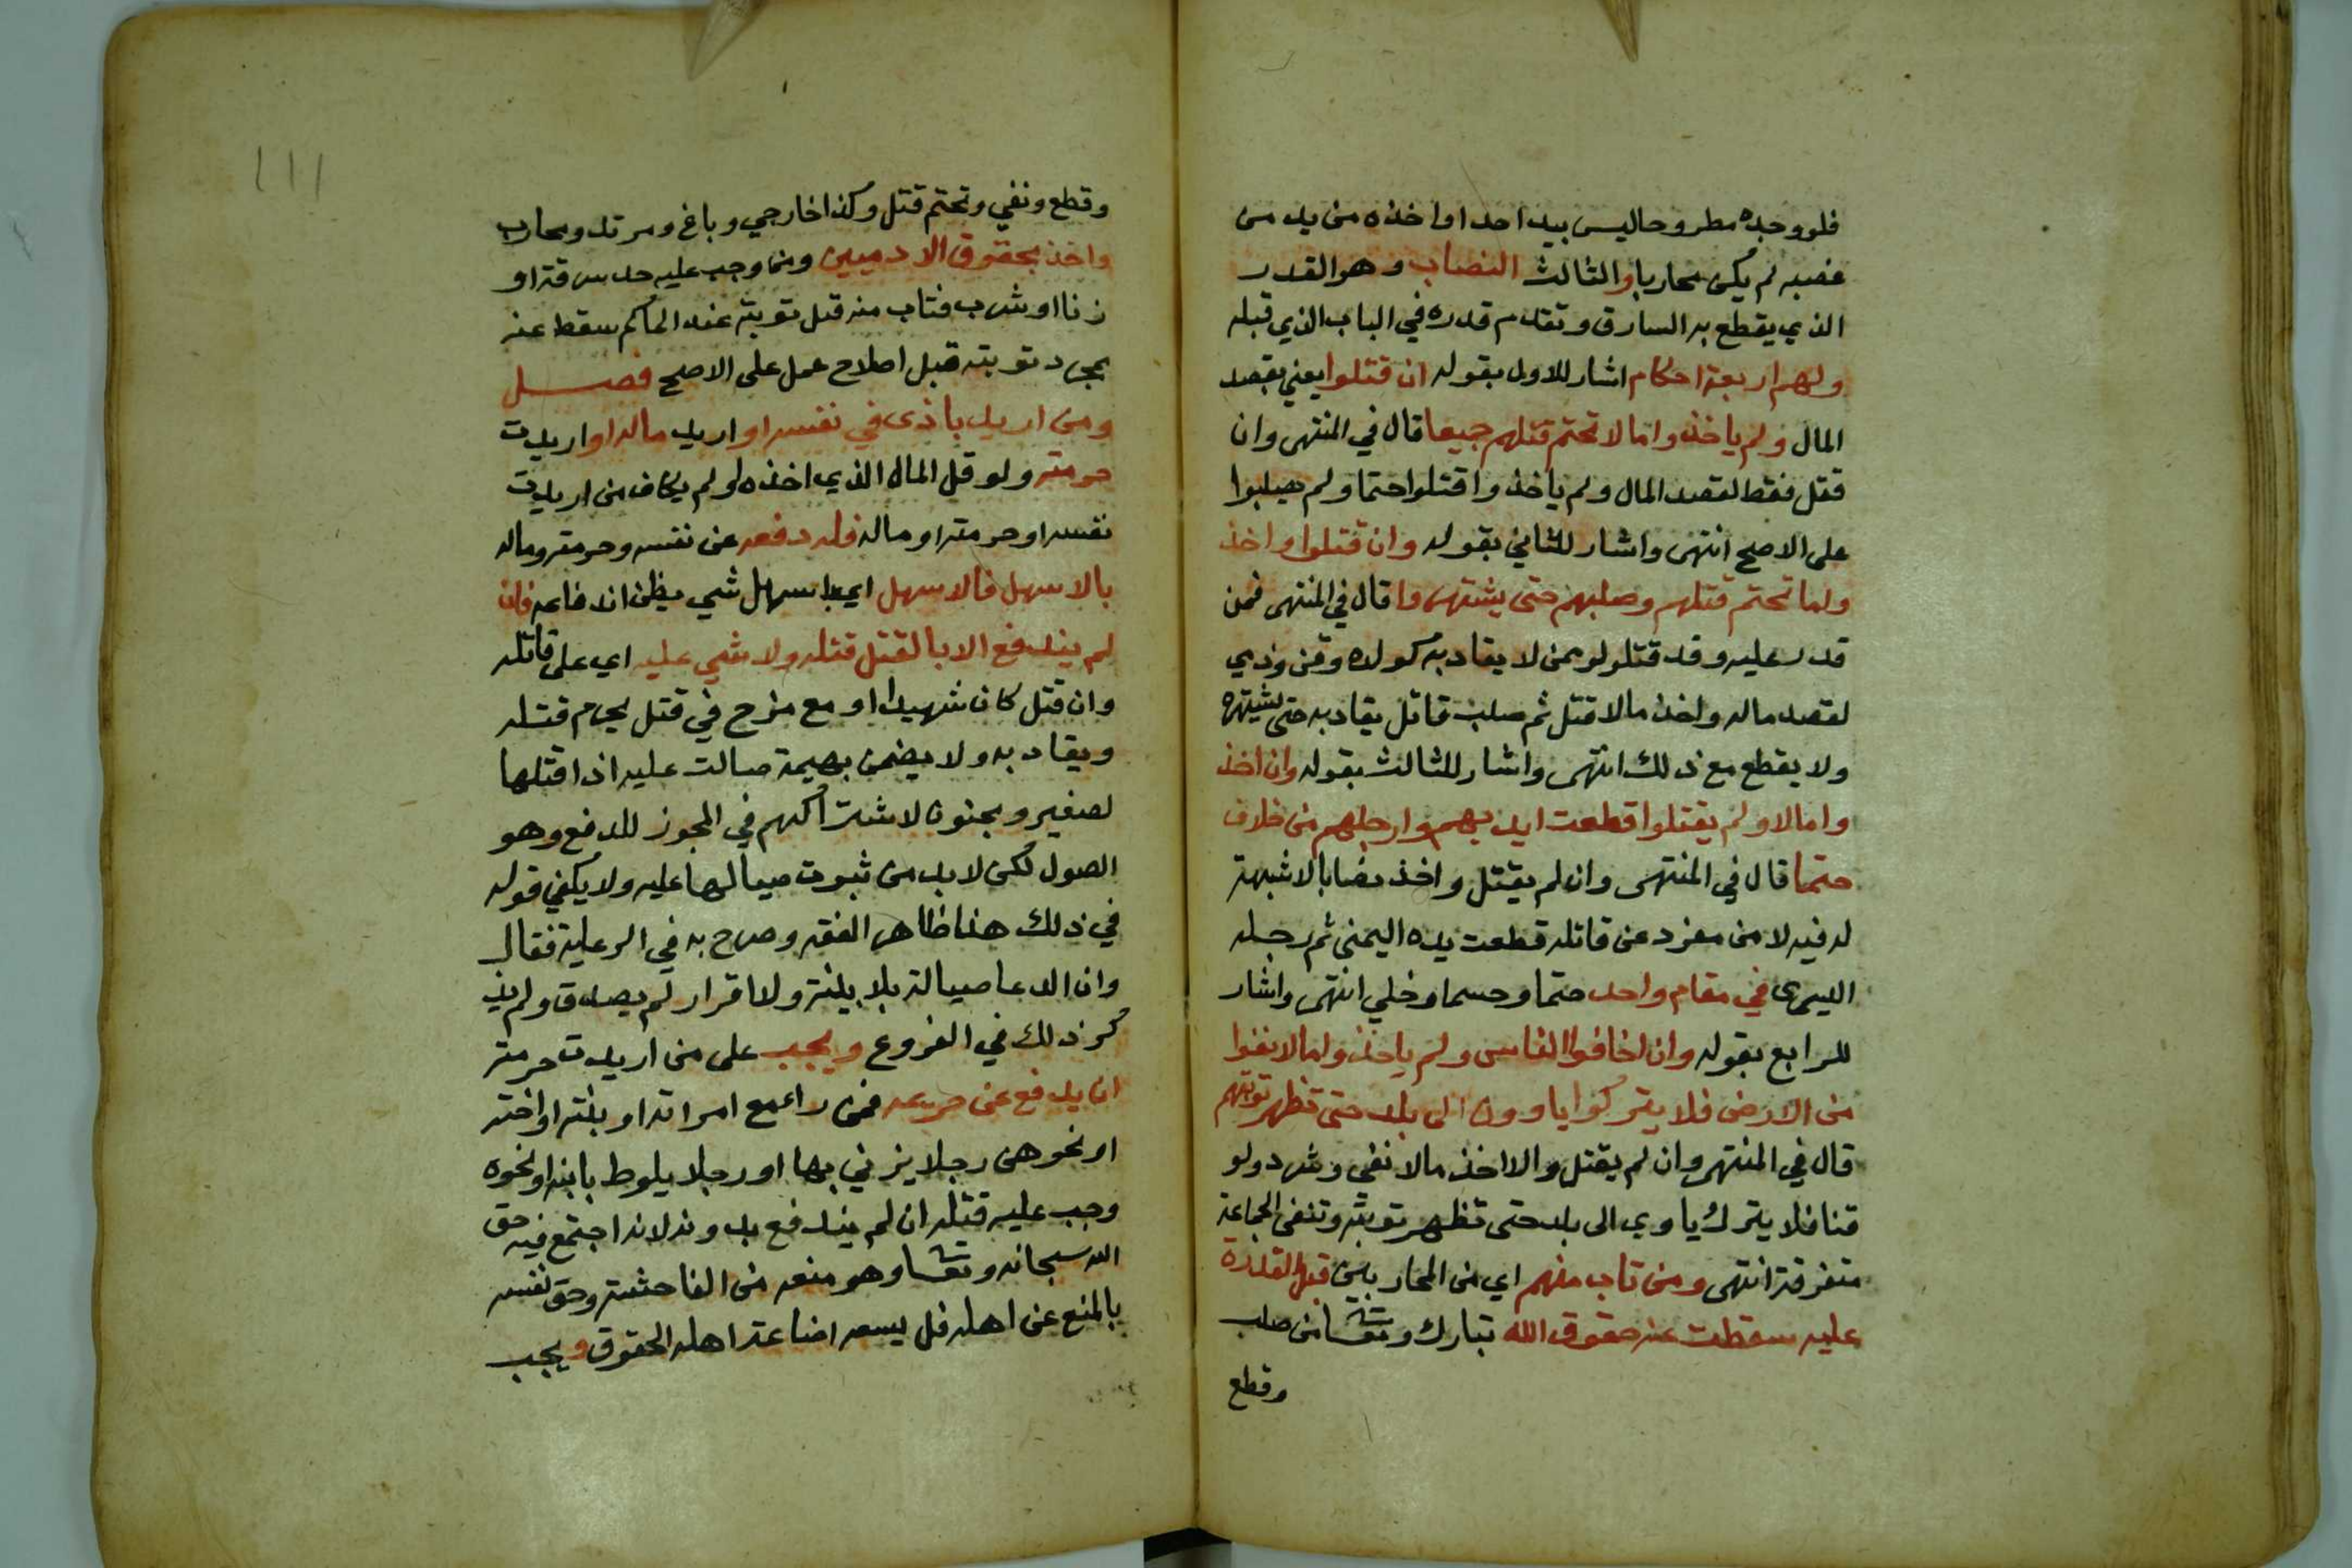 فلو وجده مطروحا ليس بيد احد او اخذه من يد من
غصبه لم يكن محاربا والثالث النصاب وهو القدر
الذي يقطع به السارق وتقدم قدره في الباب الذي قبله
ولهم اربعة احكام اشار للاول بقوله ان قتلوا يعني بقصد
المال ولم ياخذوا مالا تحتم قتلهم جميعا قال في المنتهى وان
قتل فقط لقصد المال ولم ياخذوا قتلوا حتما ولم يصلبوا
على الاصح انتهى واشار للثاني بقوله وان قتلوا واخذ
وا مالا تحتم قتلهم وصلبهم حتى يشتهروا قال في المنتهى فمن
قدر عليه وقد قتل ولو من لا يقاد به كولده وقن وذمي
لقصد ماله واخذ مالا قتل ثم صلب قاتل يقاد به حتى يشتهر
ولا يقطع مع ذلك انتهى واشار للثالث بقوله وان اخذ
وا مالا ولم يقتلوا قطعت ايديهم وارجلهم من خلاف
حتما قال في المنتهى وان لم يقتل واخذ نصابا لا شبهة
له فيه لا من مفرد عن قافلة قطعت يده اليمنى ثم رجله
اليسرى في مقام واحد حتما وحسما وخلي انتهى واشار
للرابع بقوله وان اخافوا الناس ولم ياخذوا مالا نفوا
من الارض فلا يتركوا ياوون الى بلد حتى تظهر توبتهم
قال في المنتهى وان لم يقتل والا اخذ مالا نفي وشرد ولو
قنا فلا يترك ياوي الى بلد حتى تظهر توبته وتنفى الجماعة
متفرقة انتهى ومن تاب منهم اي من المحاربين قبل القدرة
عليه سقطت عنه حقوق الله تبارك وتعالى من صلب
وقطع
١١١
وقطع ونفي وتحتم قتل وكذا خارجي وباغ ومرتد ومحارب
واخذ بحقوق الادميين ومن وجب عليه حد سرقة او
زنا او شرب فتاب منه قبل توبته عند الحاكم سقط عنه
بمجرد توبته قبل اصلاح عمل على الاصح فصل
ومن اريد باذى في نفسه او اريد ماله او اريدت
حرمته ولو قل المال الذي اخذه او لم يكاف من اريدت
نفسه او حرمته او ماله فله دفعه عن نفسه وحرمته وماله
بالاسهل فالاسهل اي باسهل شي يظن اندفاعه فان
لم يندفع الا بالقتل قتله ولا شي عليه اي على قاتله
وان قتل كان شهيدا او مع مزح في قتل يحرم قتله
ويقاد به ولا يضمن بهيمة صالت عليه اذا قتلها
لصغير ومجنون لاشتراكهم في المجوز للدفع وهو
الصول لكن لا بد من ثبوت صيالها عليه ولا يكفي قوله
في ذلك هذا ظاهر الفقه وصرح به في الرعاية فقال
وان ادعا صيالة بلا بينة ولا اقرار لم يصدق ولم يذ
كر ذلك في الفروع ويجب على من اريدت حرمته
ان يدفع عن حريمه فمن راى مع امراته او بنته او اخته
او نحوهن رجلا يزني بها او رجلا يلوط بابنه او نحوه
وجب عليه قتله ان لم يندفع بدونه لانه اجتمع فيه حق
الله سبحانه وتعالى وهو منعه من الفاحشة وحق نفسه
بالمنع عن اهله فل يسعه اضاعة اهله الحقوق ويجب